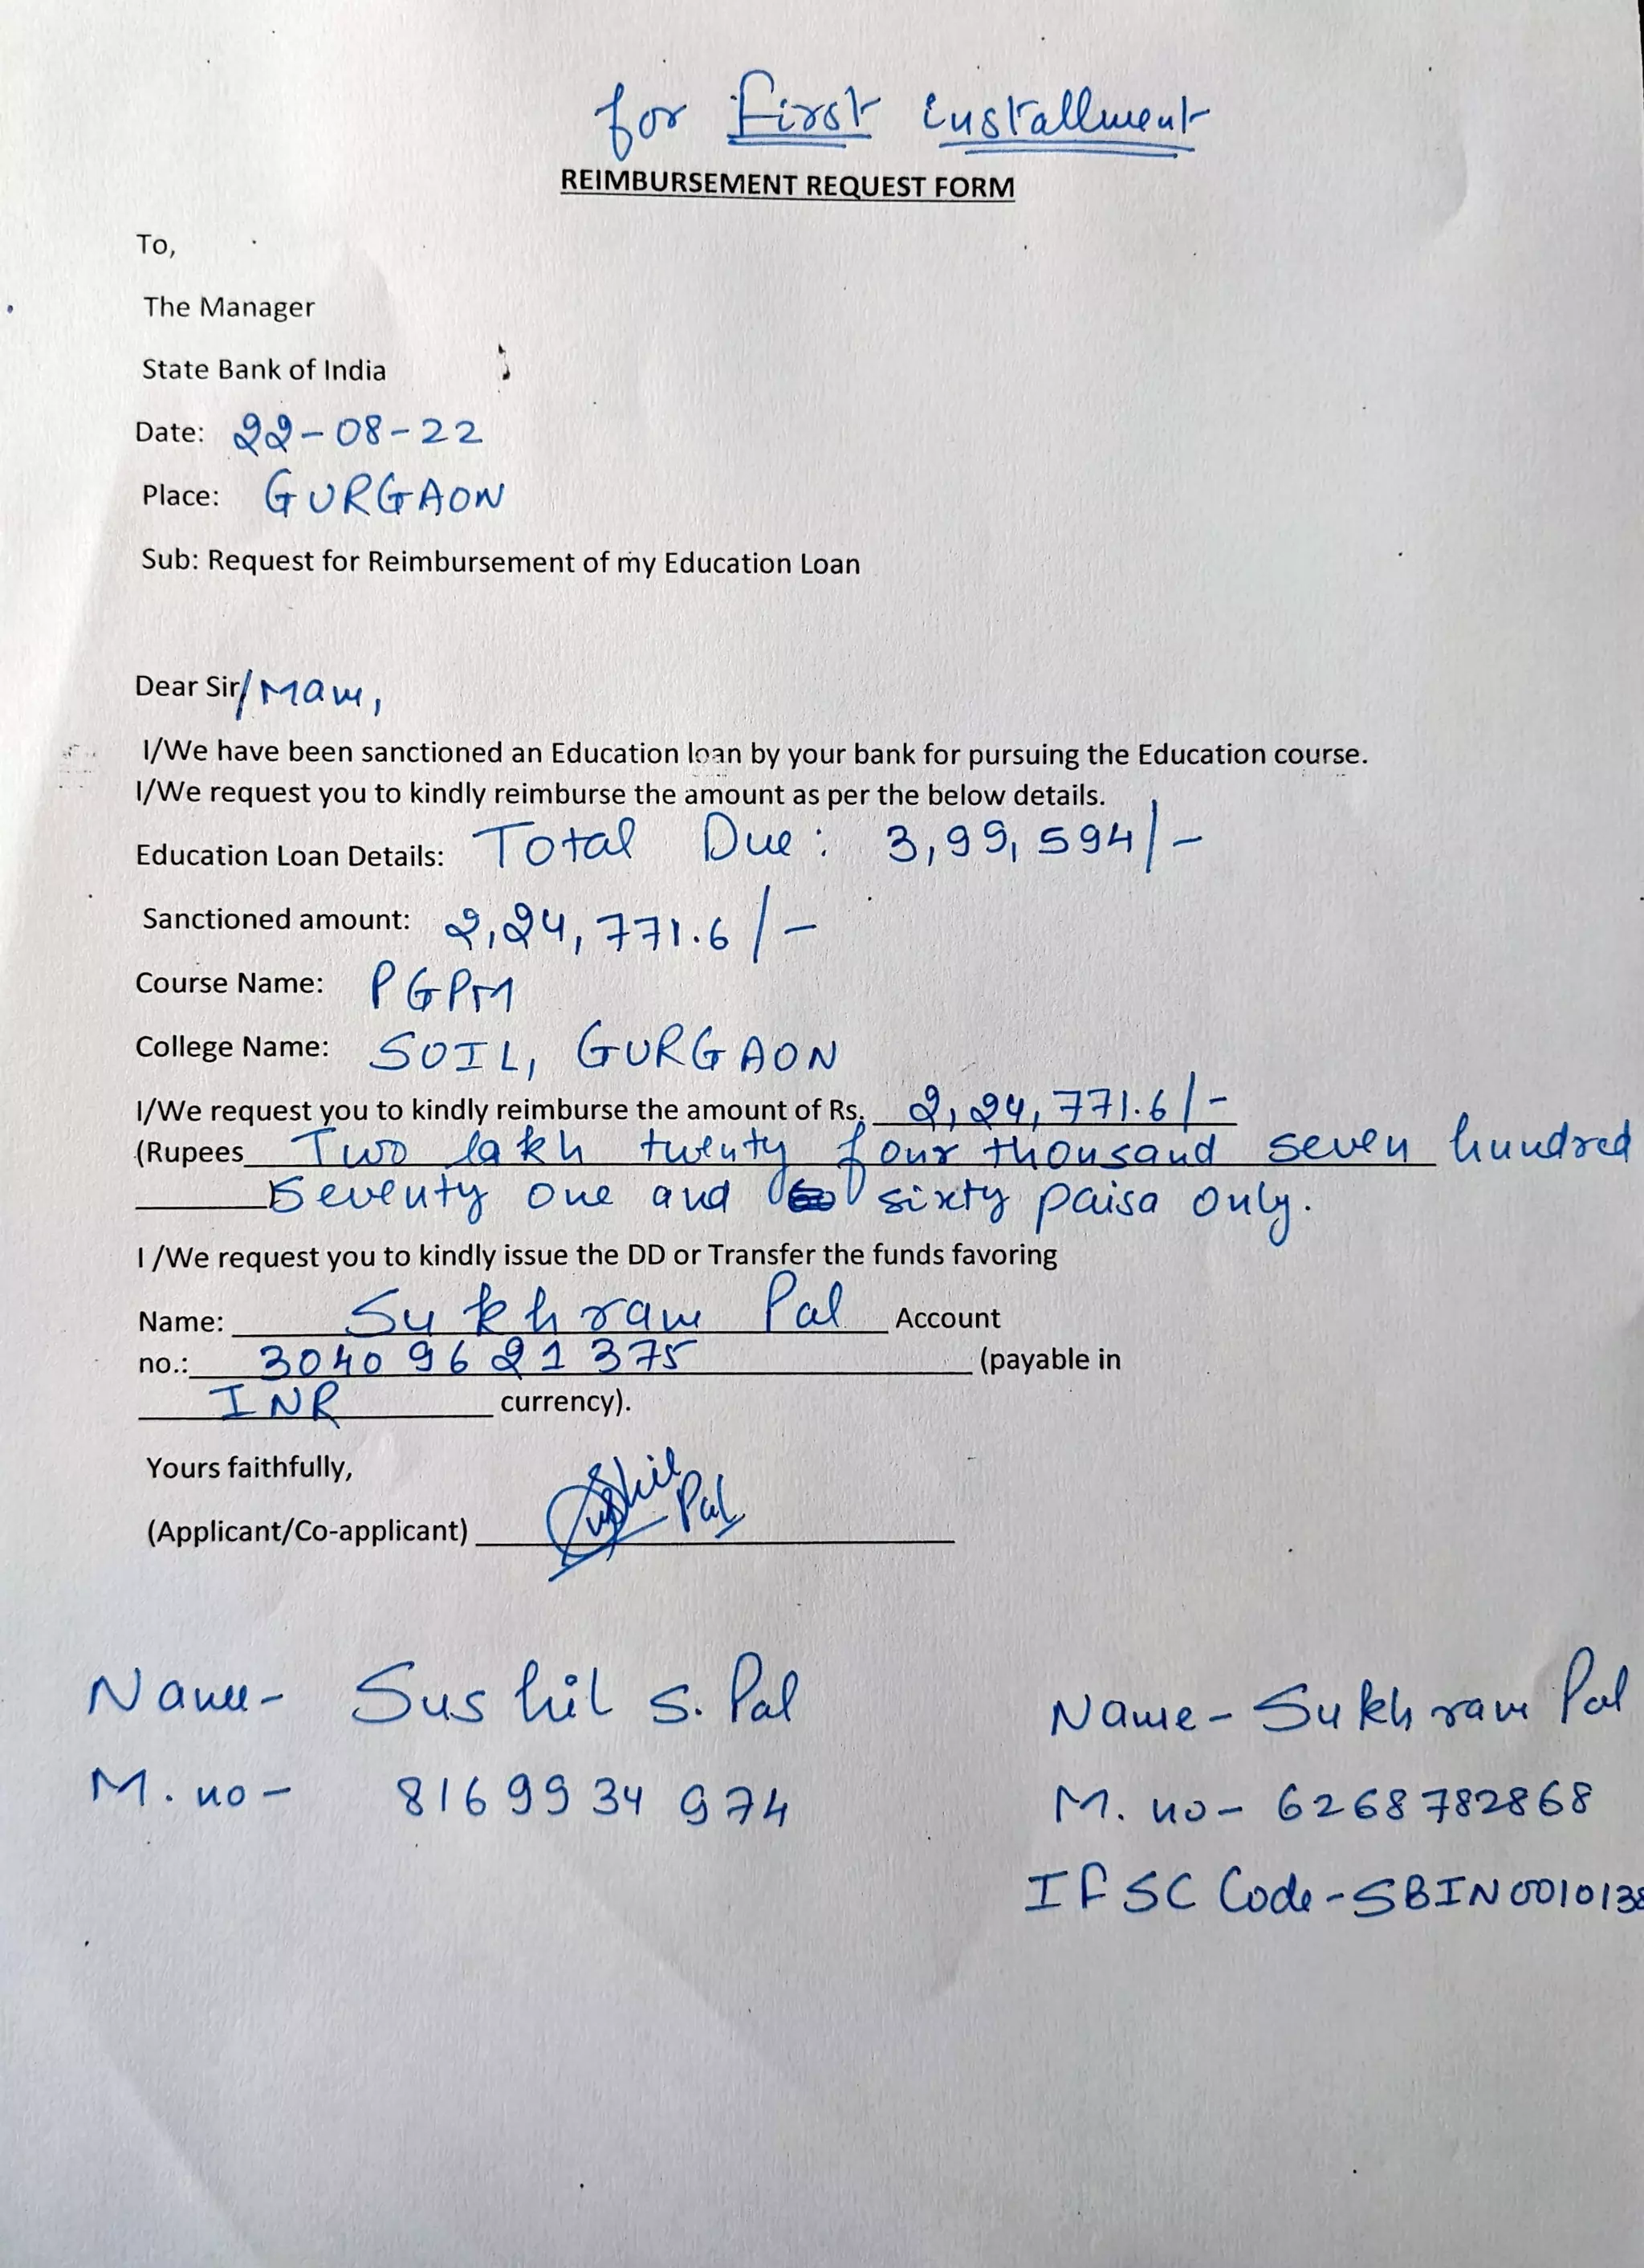 for First installment
REIMBURSEMENT REQUEST FORM
To,
The Manager
State Bank of India
Date: 22-08-22
Place: GURGAON
Sub: Request for Reimbursement of my Education Loan
Dear Sir/Mam,
I/We have been sanctioned an Education loan by your bank for pursuing the Education course.
I/We request you to kindly reimburse the amount as per the below details.
Education Loan Details: Total Due: 3,99,594/-
Sanctioned amount: 2,24,771.6/-
Course Name: PGPM
College Name: SOIL, GURGAON
I/We request you to kindly reimburse the amount of Rs. 2,24,771.6/-
(Rupees Two lakh twenty four thousand seven hundred
Seventy one and sixty paisa only.
I /We request you to kindly issue the DD or Transfer the funds favoring
Name: Sukhram Pal Account
no.: 30409621375 (payable in
INR currency).
Yours faithfully,
(Applicant/Co-applicant) Sushil Pal
Name- Sushil S. Pal Name- Sukhram Pal
M. no- 8169934974 M. no- 6268782868
IFSC Code-SBIN0010138